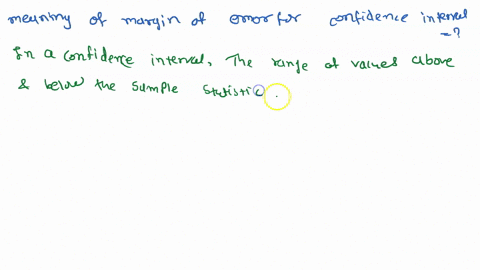 meaning of margin of error for confidence interval
=?
In a confidence interval, The range of values above
& below the sample statistic.